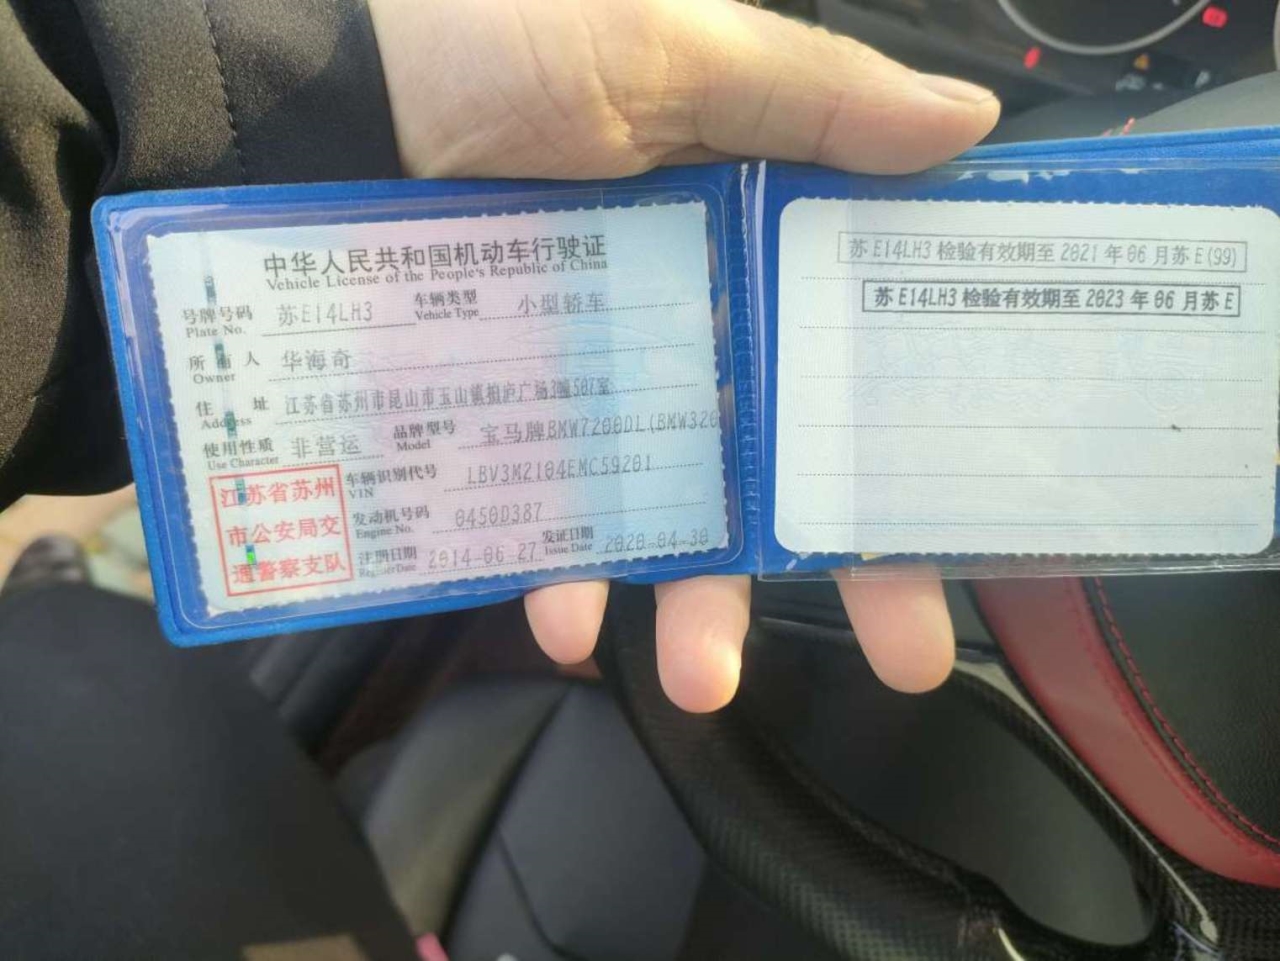 中华人民共和国机动车行驶证
Vehicle License of the People's Republic of China
号牌号码 苏E14LH3 车辆类型 小型轿车
Plate No. Vehicle Type
所有人 华海奇
Owner
住址 江苏省苏州市昆山市玉山镇柏庐广场3幢507室
Address
使用性质 非营运 品牌型号 宝马牌BMW7200DL(BMW320
Use Character Model
江苏省苏州
市公安局交
通警察支队
车辆识别代号 LBV3M2104EMC59201
VIN
发动机号码 0450D387
Engine No.
注册日期 2014-06-27 发证日期 2020-04-30
Register Date Issue Date
苏E14LH3 检验有效期至 2021 年 06 月苏 E(99)
苏 E14LH3 检验有效期至 2023 年 06 月苏 E
P